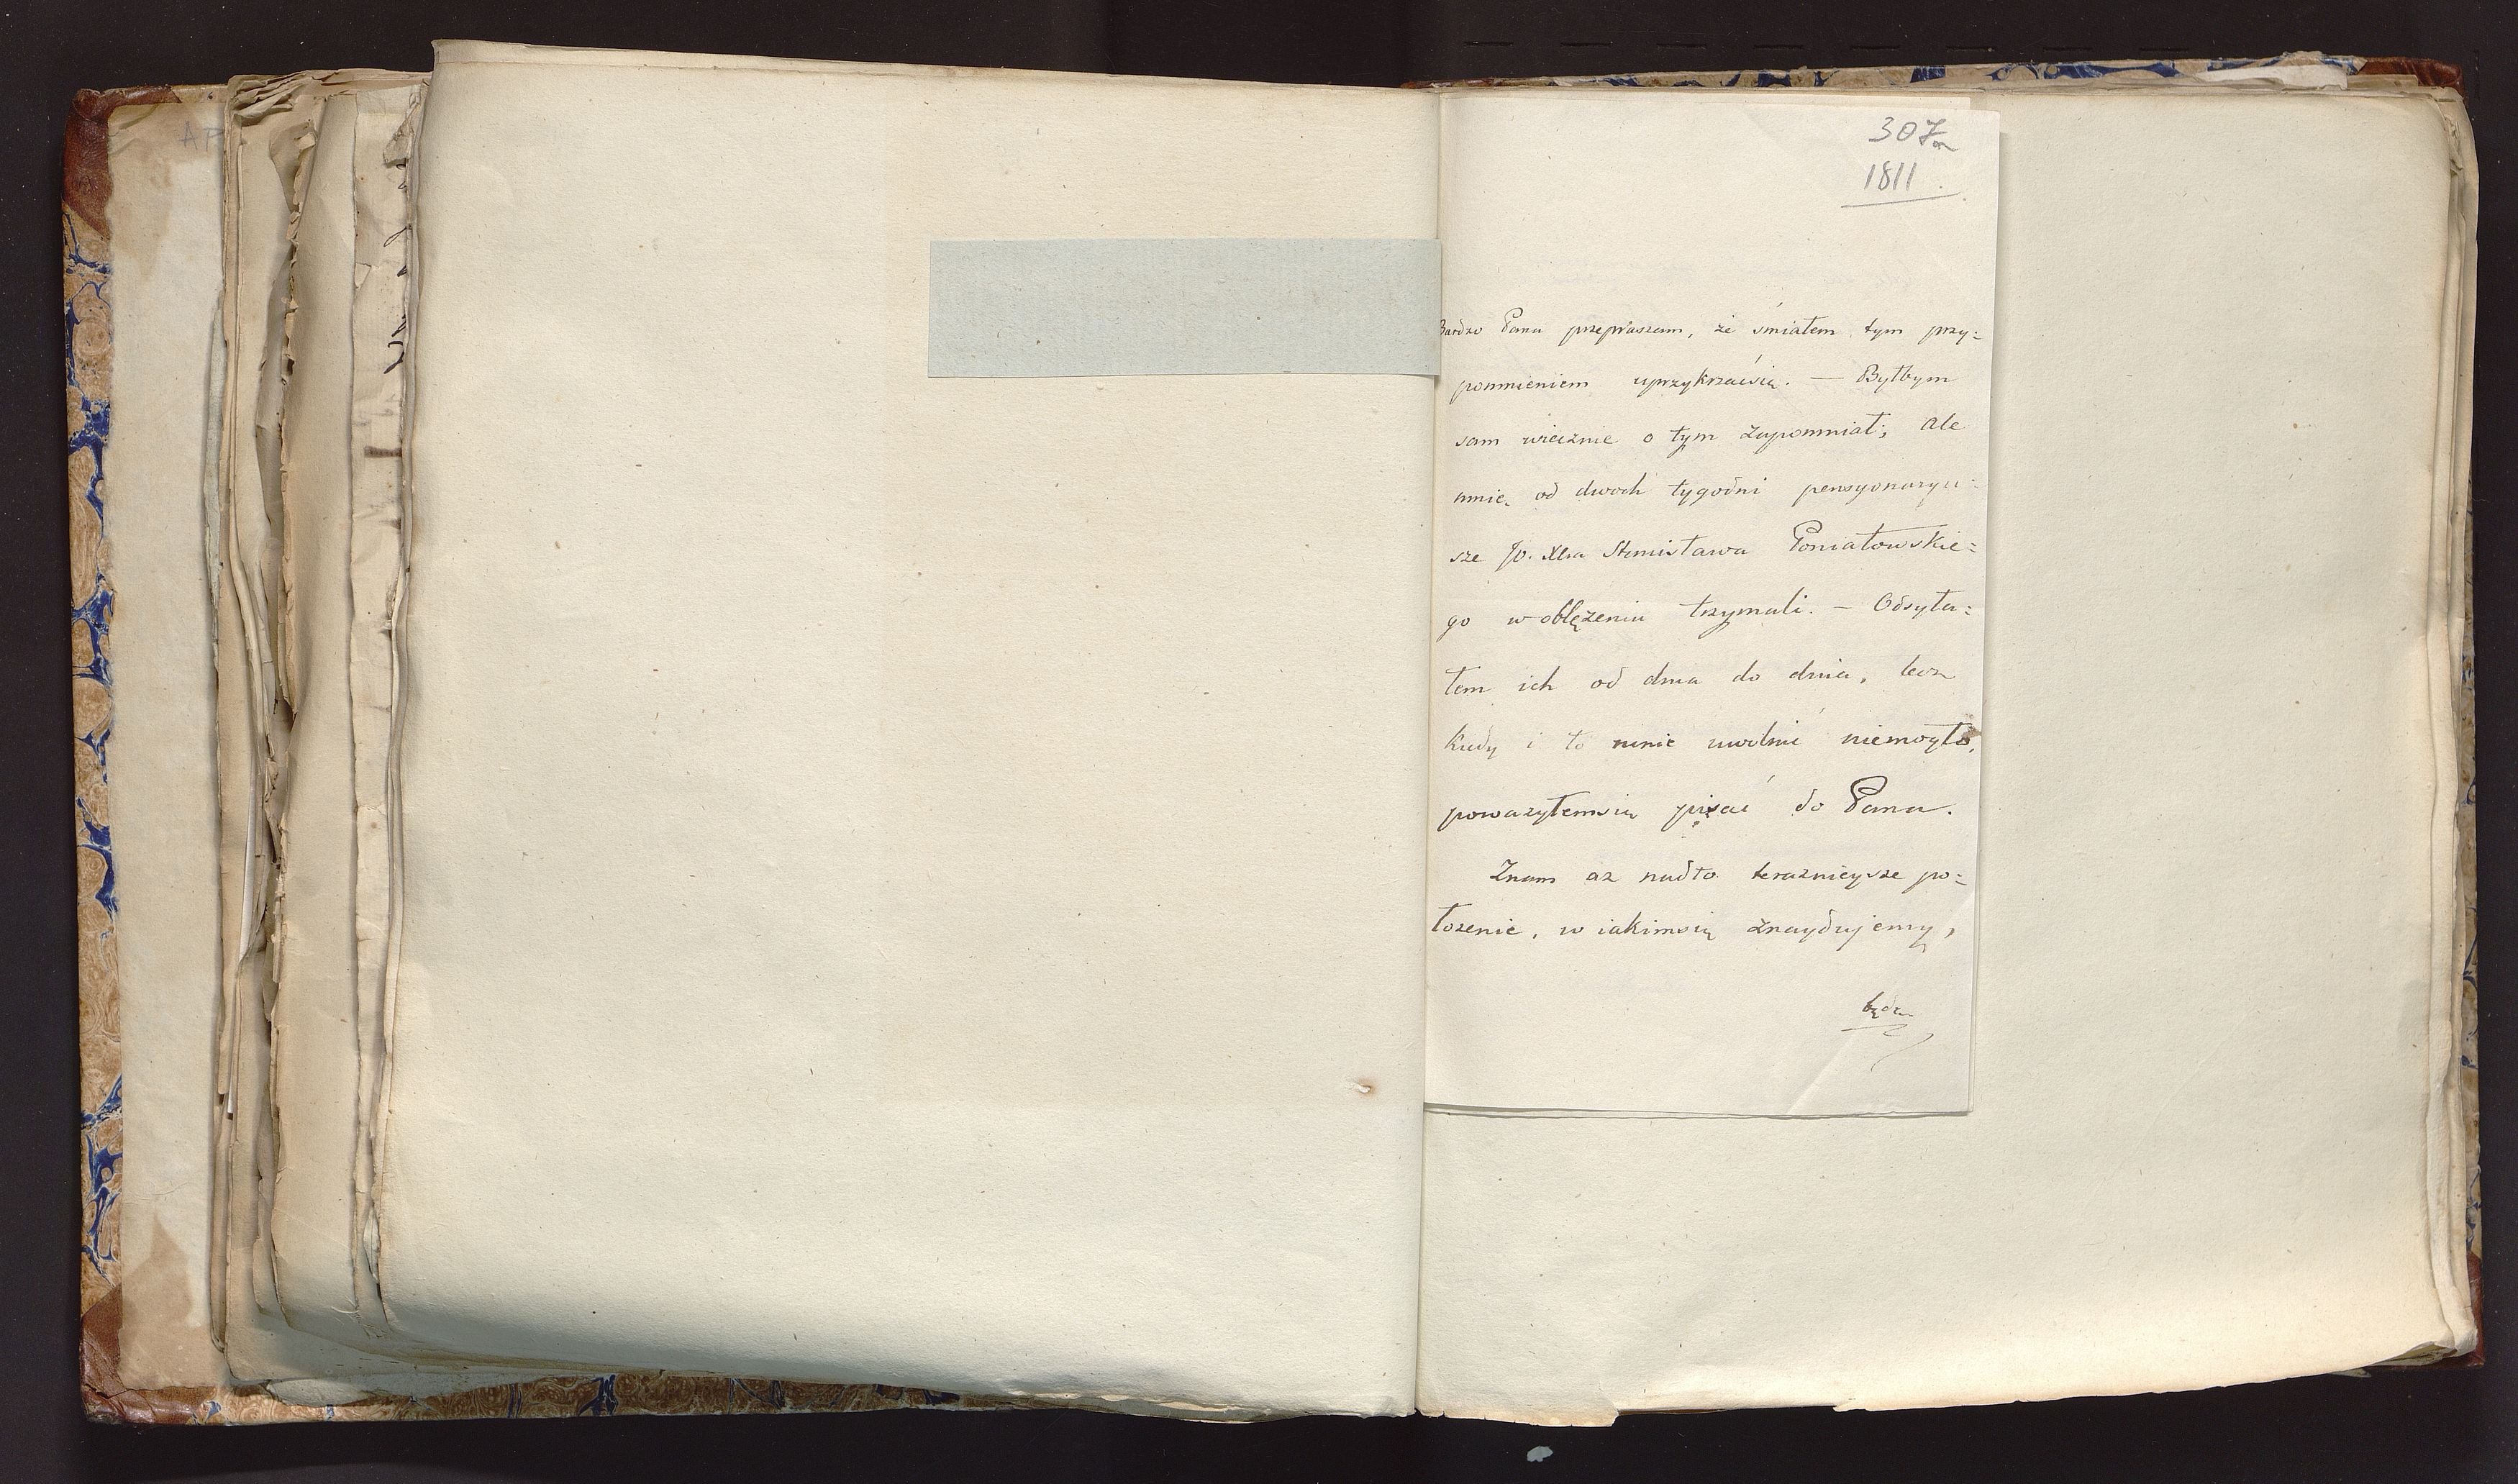 307a
1811.
Bardzo Pana przepraszam, że śmiałem tym przy=
pomnieniem uprzykrzaćsię. — Byłbym
sam wiecznie o tym zapomniał; ale
mnie od dwoch tygodni pensyonaryu=
sze JO. Xcia Stanisława Poniatowskie=
go w oblęzeniu trzymali. — Odsyła=
łem ich od dnia do dnia, lecz
kiedy i to mnie uwolnić niemogło,
powazyłemsię pisać do Pana.
Znam az nadto teraznieysze po=
łozenie, w iakimsię znaydujemy,
będz